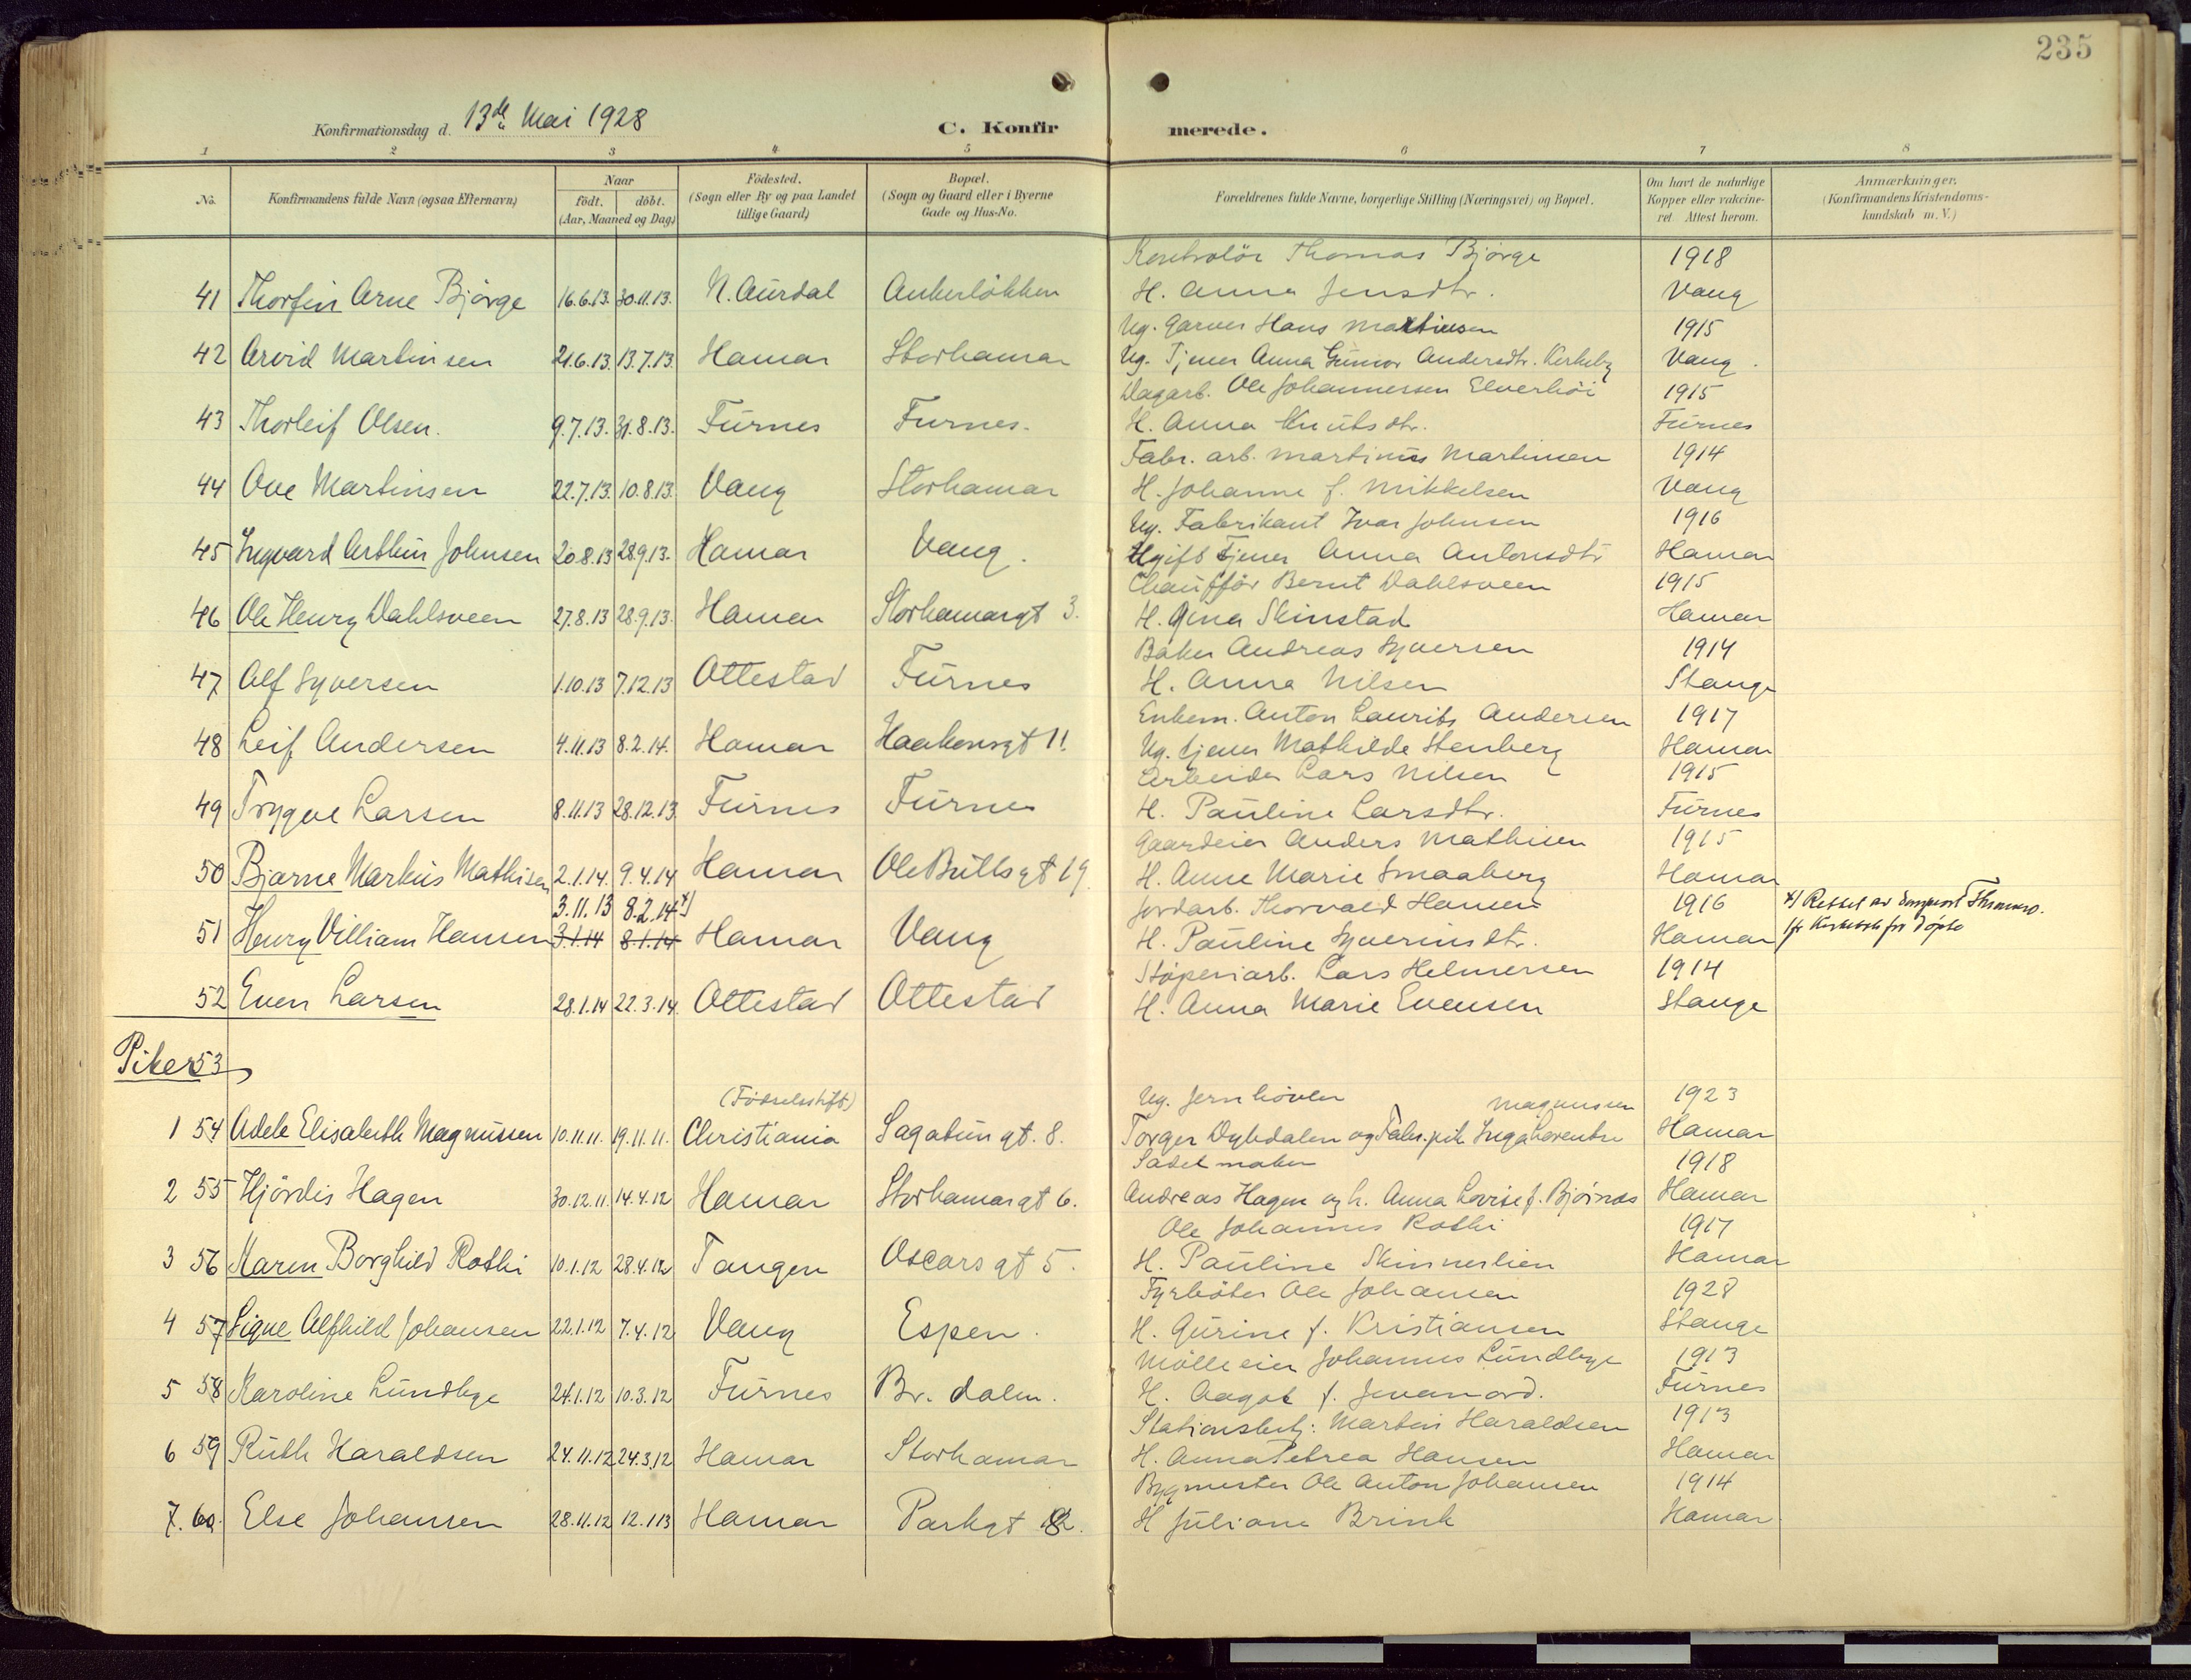 235
Konfirmationsdag d. 13de Mai 1928
C. Konfirmerede.
1 2 3 4 5 6 7 8
No.
Konfirmandens fulde Navn (ogsaa Efternavn)
Naar
födt. döbt.
(Aar, Maaned og Dag.)
Födested.
(Sogn eller By og paa Landet
tillige Gaard)
Bopæl.
(Sogn og Gaard eller i Byerne
Gade og Hus-No.
Forældrenes fulde Navne, borgerlige Stilling (Næringsvei) og Bopæl.
Om havt de naturlige
Kopper eller vakcine-
ret Attest herom.
Anmærkninger.
(Konfirmandens Kristendoms-
kundskab m. V.)
Kontrolör Thomas Bjørge 1918
41 Thorfin Arne Bjørge 16.6.13. 30.11.13. N. Aurdal Ankerlökken H. Anna Jensdtr. Vang
Ug. Garver Hans Martinsen 1915
42 Arvid Martinsen 21.6.13. 13.7.13. Hamar Storhamar Ug. Tjener Anna Gunvor Andersdtr. Kirkeby Vang.
Dagarb. Ole Johannessen Elverhöi 1915
43 Thorleif Olsen. 9.7.13. 31.8.13. Furnes Furnes. H. Anna Knutsdtr. Furnes
Fabr. arb. Martinus Martinsen 1914
44 Ove Martinsen 22.7.13. 10.8.13. Vang Storhamar H. Johanne f. Mikkelsen Vang
Ug. Fabrikant Ivar Johnsen 1916
45 Ingvard Arthur Johnsen 20.8.13 28.9.13. Hamar Vang. Ugift tjener Anna Antonsdtr Hamar
Chauffør Bernt Dahlsveen 1915
46 Ole Henry Dahlsveen 27.8.13 28.9.13. Hamar Storhamargt 3. H. Gina Skinstad Hamar
Baker Andreas Syversen 1914
47 Alf Syversen 1.10.13 7.12.13 Ottestad Furnes H. Anna Nilsen Stange
Enkem. Anton Laurits Andersen 1917
48 Leif Andersen 4.11.13 8.2.14. Hamar Haakonsgt 11. Ug. tjener Mathilde Stenberg Hamar
Arbeider Lars Nilsen 1915
49 Trygve Larsen 8.11.13 28.12.13 Furnes Furnes H. Pauline Larsdtr. Furnes
Gaardeier Anders Mathisen 1915
50 Bjarne Markus Mathisen 2.1.14. 9.4.14 Hamar Ole Bullsgt 19. H. Anne Marie Smaaberg Hamar
3.11.13 8.2.14 x) Jordarb. Thorvald Hansen 1916 x) Rettet av
51 Henry Villiam Hansen 3.1.14 8.1.14 Hamar Vang H. Pauline Syverinsdtr. Hamar Kirkebok for døpte
Støperiarb. Lars Helmersen 1914
52 Even Larsen 28.1.14 22.3.14. Ottestad Ottestad H. Anna Marie Evensen Stange
Piker 53
(Fødselsstift) Ug. Jernhøvler Magnussen 1923
1 54 Adele Elisabeth Magnussen 10.11.11. 19.11.11. Christiania Sagatungt. 8. Torger Dybdalen og Fabr.pik Inga Lorentse Hamar
Sadelmaker 1918
2 55 Hjördis Hagen 30.12.11. 14.4.12 Hamar Storhamargt 6. Andreas Hagen og h. Anna Lovise f. Bjørnos Hamar
Ole Johannes Rothi 1917
3 56 Karen Borghild Rothi 10.1.12 28.4.12 Tangen Oscarsgt 5. H. Pauline Skinnerlien Hamar
Fyrböter Ole Johansen 1928
4 57 Signe Alfhild Johansen 22.1.12 7.4.12 Vang Espen. H. Gurine f. Kristiansen Stange
Mölleeier Johannes Lundbye 1913
5 58 Karoline Lundbye 24.1.12 10.3.12 Furnes Br. dalen. H. Aagot f. Jevanord. Furnes
Stationsbetj. Martin Haraldsen 1913
6 59 Ruth Haraldsen 24.11.12 24.3.12 Hamar Storhamar H. Anna Petrea Hansen Hamar
Bygmester Ole Anton Johansen 1914
7. 60. Else Johansen 28.11.12 12.1.13 Hamar Parkgt H Juliane Brink Hamar